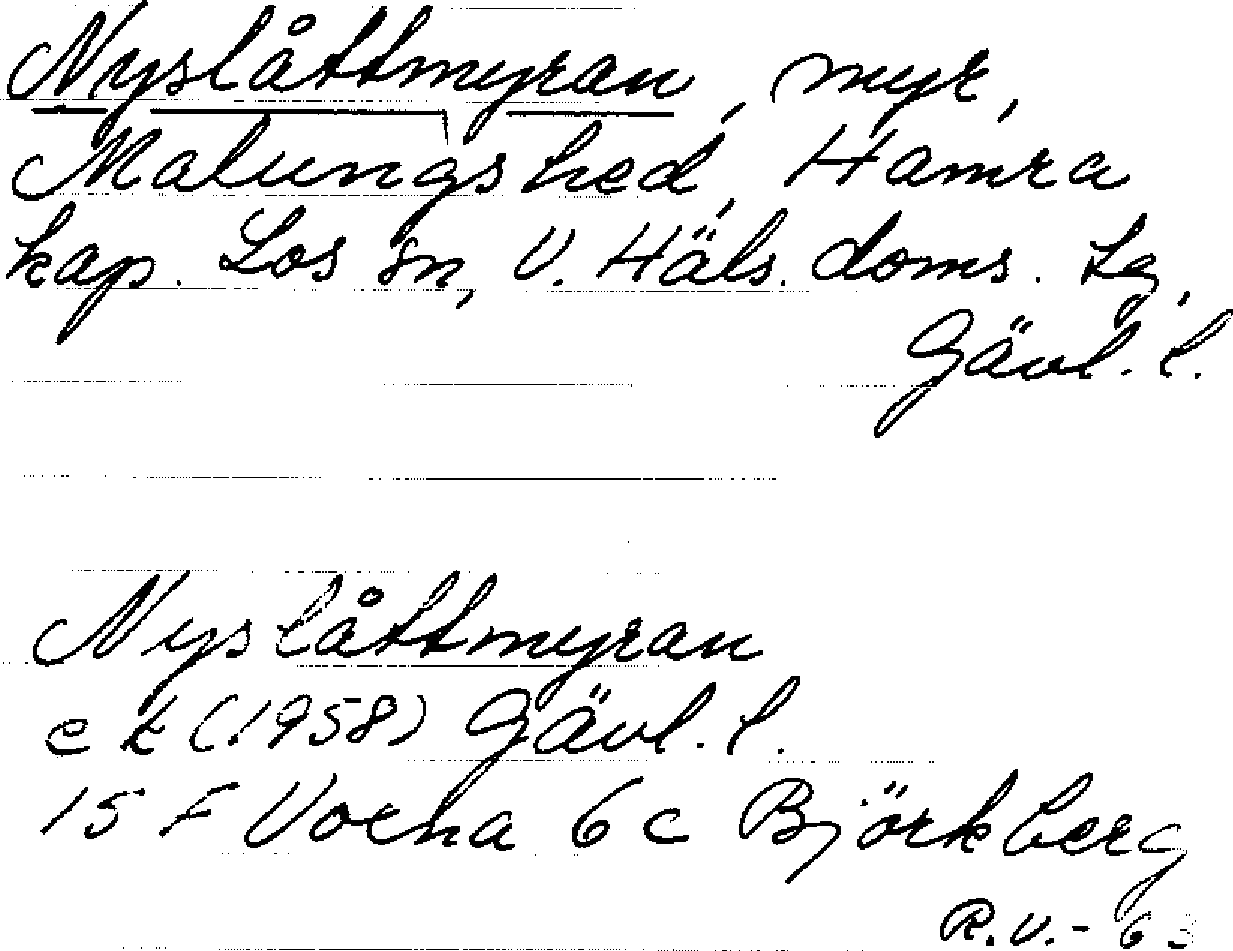 Nyslåttmyran, myr,
Malungshed, Hamra
kap. Los sn, V. Häls. doms. Lg,
Gävl. l.
Nyslåttmyran
e k (1958) Gävl. l.
15 F Voxna 6 c Björkberg
R.V.-63